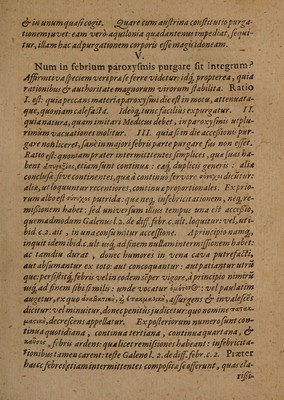 & in unum quasi cogit. Quare cum austrina constitutio purga-
tionem iuvet: eam verò aquilonia quadantenus impediat, sequi-
tur, illam hac ad purgationem corporis esse magis idoneam.
V.
Num in febrium paroxysmis purgare sit integrum?
Affirmativa speciem veri præ se ferre videtur: idq́; propterea, quia
rationibus & authoritate magnorum virorum stabilita. Ratio
I. est: quia peccans materia paroxysmi die est in motu, attenuata-
que, quoniam calefacta. Ideoq́; tunc facilius expurgatur. II.
quia natura, quam imitari Medicus debet, in paroxysmis ut plu-
rimùm vacuationes molitur. III. quia si in die accessionis pur-
gare non liceret, sanè in majori febris parte purgare fas non esset.
Ratio est: quoniam præter intermittentes simplices, quæ suas ha-
bent etiam sunt continuæ: eæq́; duplicis generis: aliæ
conclusæ sive continentes, quæ à continuo fervore dicuntur
aliæ, ut loquuntur recentiores, continuæ proportionales. Ex prio-
rum albo est putrida: quæ neq́; infebricitationem, neq́; re-
missionem habet: sed universum illius tempus una est accessio,
quemadmodum Galenus l. 2. de diff. febr. c. ult. loquitur: vel, ut i-
bid. c. 2. ait, in una consumitur accessione. A principio namq́;
inquit idem ibid. c. ult. usq́; ad finem nullam intermissionem habet:
ac tamdiu durat, donec humores in vena cava putrefacti,
aut absumantur ex toto: aut concoquantur: aut patiantur utrun-
que: persistitq́; febris vel in eodem semper vigore, à principio nimirum
usq́; ad finem sibi similis: unde vocatur vel paulatim
augetur, ex quo assurgens & invalescens
dicitur: vel minuitur, donec penitus judicetur: quo nomine
decrescens appellatur. Ex posteriorum numero sunt con-
tinua quotidiana, continua tertiana, continua quartana, &
febris ardens: quæ licet remissiones habeant: infebricita-
tionibus tamen carent: teste Galeno l. 2. de diff. febr. c. 2. Præter
hasce febres etiam intermittentes compositæ se offerunt, quæ rela-